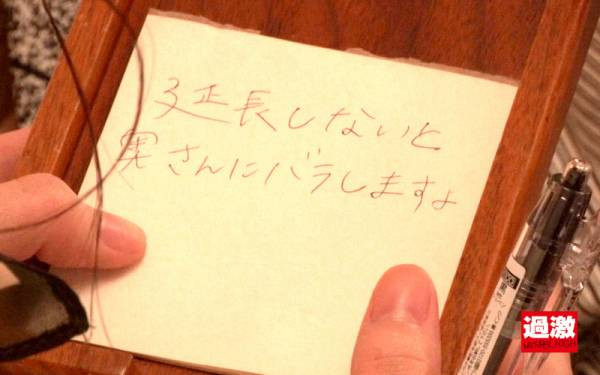 延長しないと
奥さんにバラしますよ
過激